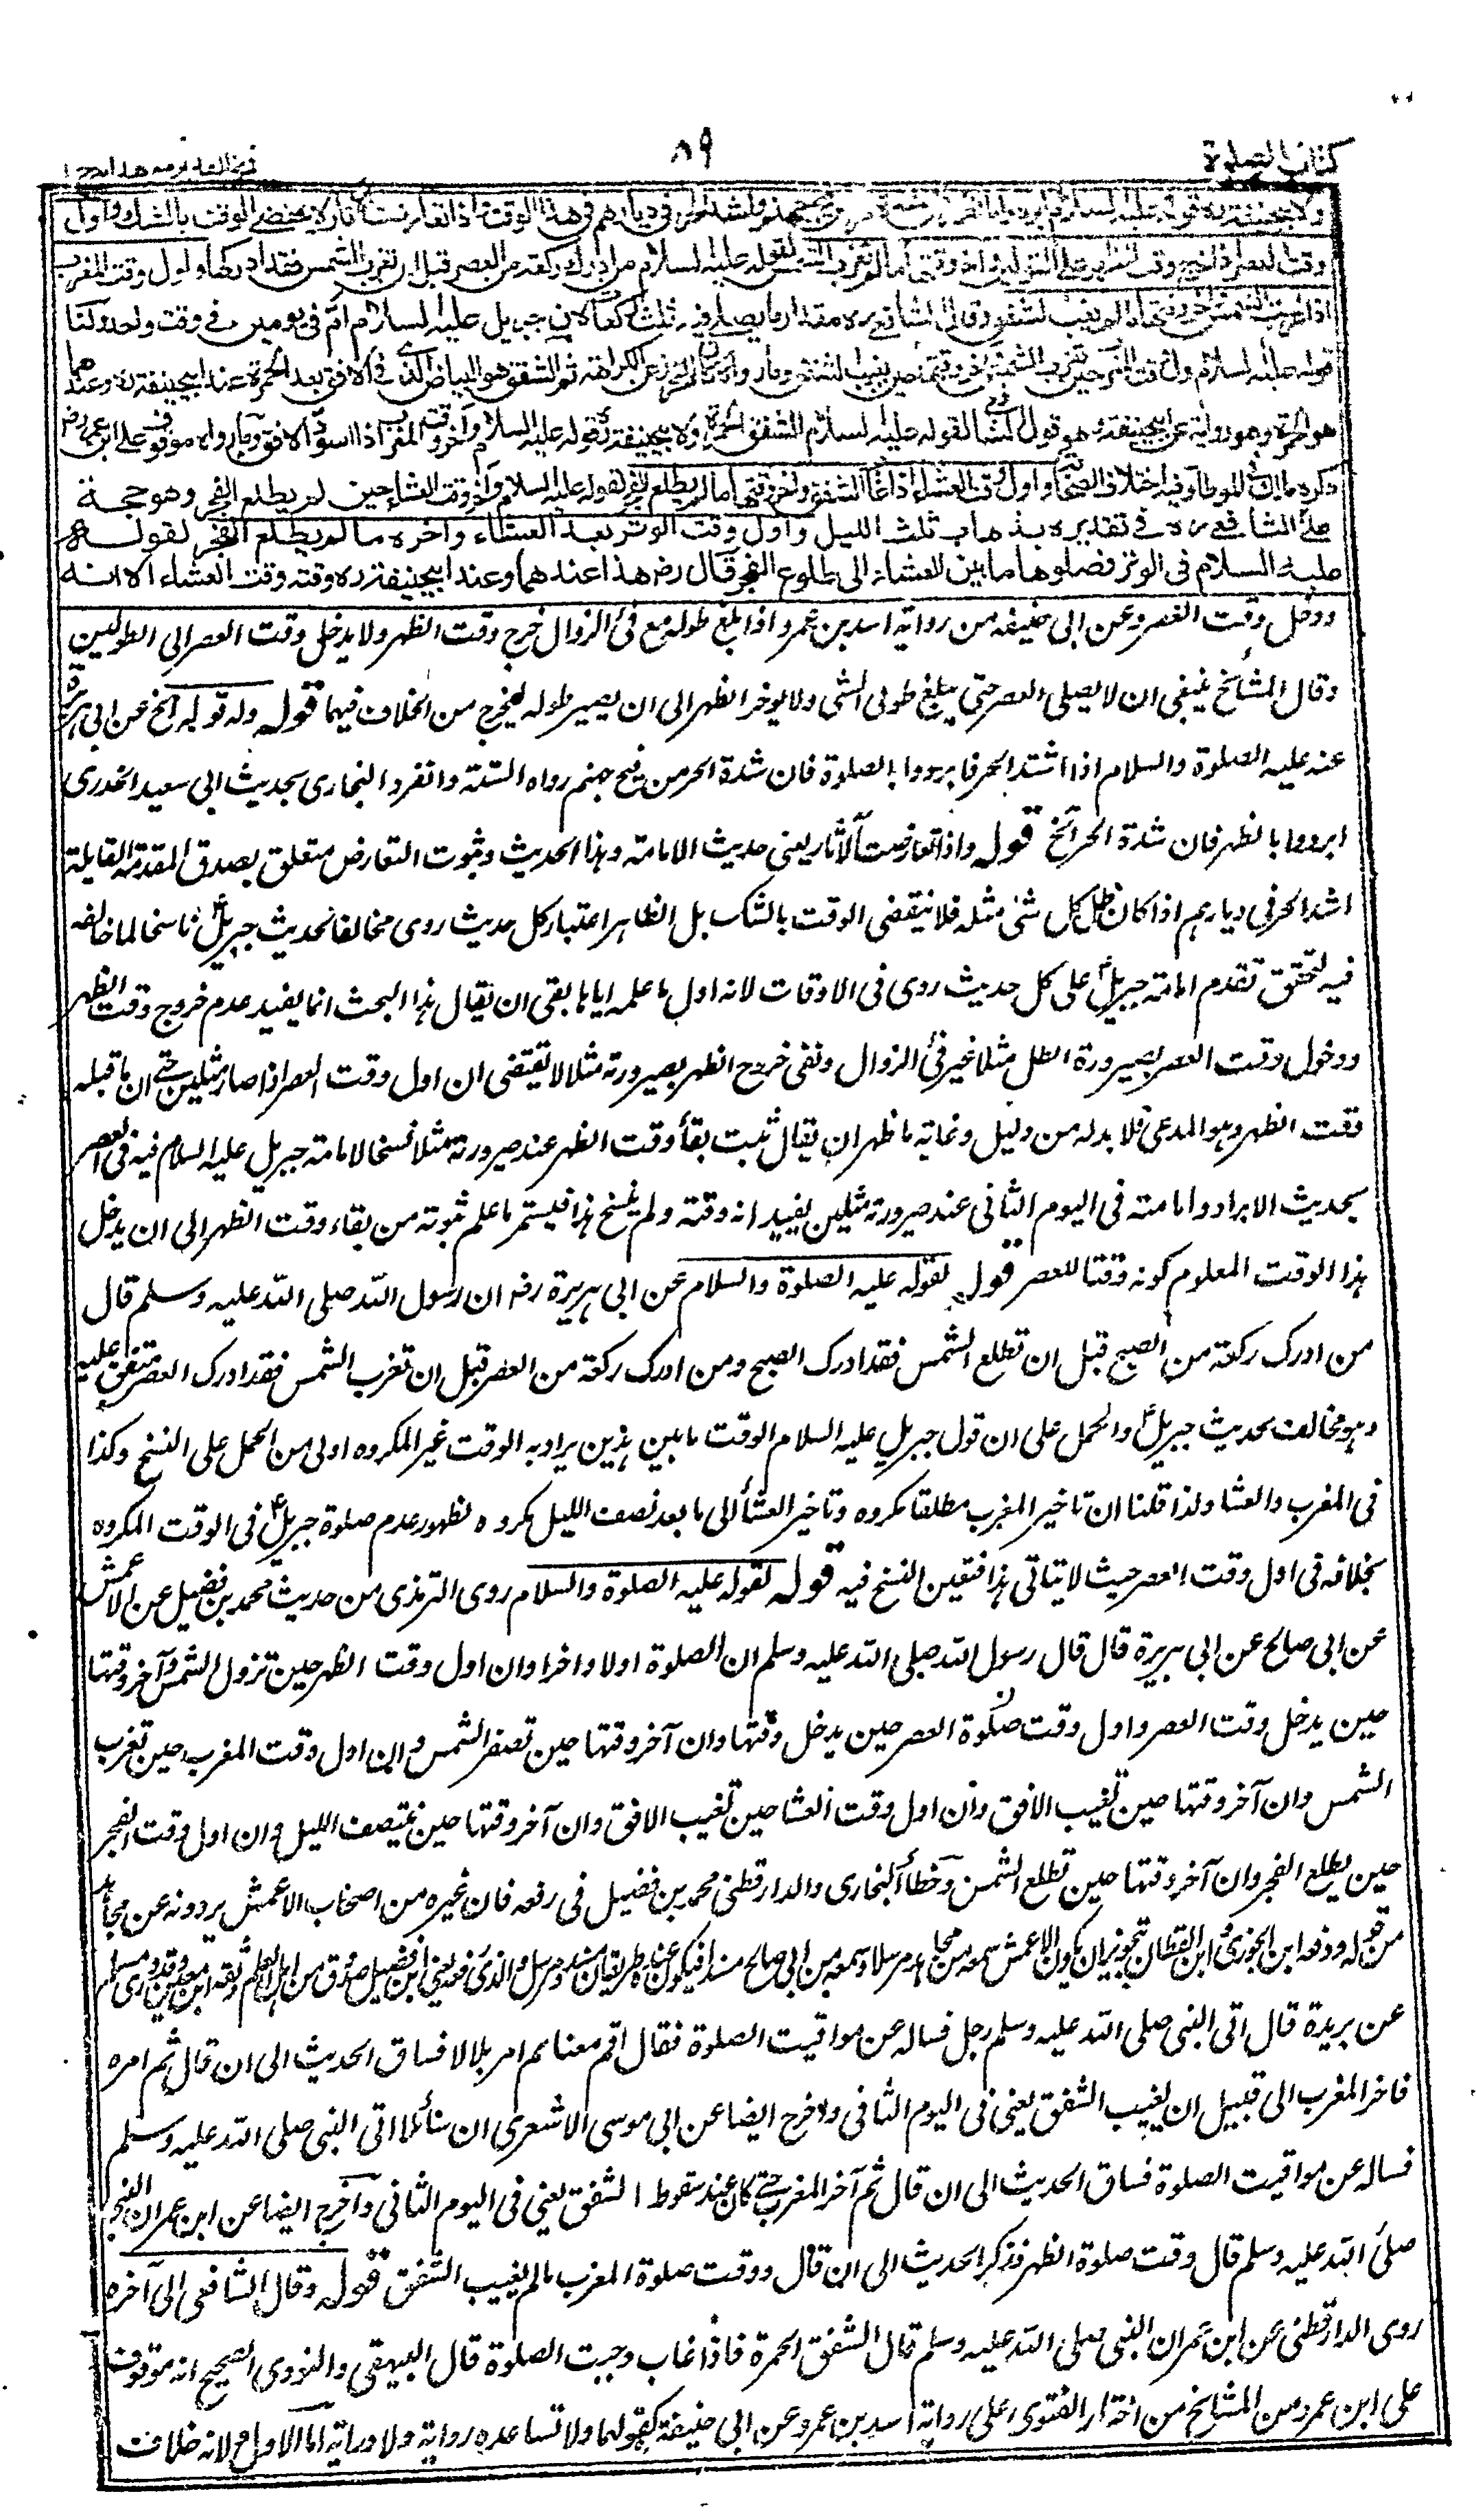 كتاب الصلوة
٨٩
ولابيحنيفة ره قوله عليه السلام ابردوا بالظهر فان شدة الحر من فيح جهنم واشد الحر في ديارهم في هذا الوقت واذا تعارضت الآثار لا ينقضے الوقت بالشك واول
وقت العصر اذا خرج وقت الظهر على القولين وآخر وقتها ما لم تغرب الشمس لقوله عليه السلام من ادرك ركعة من العصر قبل ان تغرب الشمس فقد ادركها واول وقت المغرب
اذا غربت الشمس وآخر وقتها ما لم يغيب الشفق وقال الشافعے ره مقدار ما يصلے فيه ثلث ركعات لان جبريل عليه السلام امّ في يومين في وقت واحد ولنا
قوله عليه السلام اول وقت المغرب حين تغرب الشمس وآخر وقتها حين يغيب الشفق وما رواه كان للتحرز عن الكراهة ثم الشفق هو البياض الذي في الافق بعد الحمرة عند ابيحنيفة ره وعندهما
هو الحمرة وهو رواية عن ابيحنيفة وهو قول الشافعي لقوله عليه السلام الشفق الحمرة ولابيحنيفة ره قوله عليه السلام وآخر وقت المغرب اذا اسودّ الافق وما رواه موقوف على ابن عمر رض
ذكره مالك في الموطا وفيه اختلاف الصحابة واول وقت العشاء اذا غاب الشفق وآخر وقتها ما لم يطلع الفجر لقوله عليه السلام وآخر وقت العشاء حين لم يطلع الفجر وهو حجة
على الشافعے ره في تقديره بذهاب ثلث الليل واول وقت الوتر بعد العشاء وآخره ما لم يطلع الفجر لقوله
عليه السلام في الوتر فصلوها ما بين العشاء الى طلوع الفجر قال رض هذا عندهما وعند ابيحنيفة ره وقته وقت العشاء الا انه
ودخل وقت العصر وعن ابى حنيفه من رواية اسد بن عمرو اذا بلغ طوله مع فئ الزوال خرج وقت الظهر ولا يدخل وقت العصر الى الطولين
وقال المشايخ ينبغى ان لا يصلى العصر حتى يبلغ طولى الشئ ولا يوخر الظهر الى ان يصير طوله ليخرج من الخلاف فيهما قوله وله قوله الخ عن ابى هريرة
عنه عليه الصلوة والسلام اذا اشتد الحر فابردوا بالصلوة فان شدة الحر من فيح جهنم رواه الستة وانفرد البخارى بحديث ابى سعيد الخدرى
ابردوا بالظهر فان شدة الحر الخ قوله واذا تعارضت الآثار يعنى حديث الامامة وهذا الحديث وثبوت التعارض متعلق بصدق المقدمة القايلة
اشد الحر فى ديارهم اذا كان ظل كل شئ مثله فلا ينقضى الوقت بالشك بل الظاهر اعتبار كل حديث روى مخالفا لحديث جبريل ناسخا لما خالفه
فيه لتحقق تقدم امامة جبريل على كل حديث روى فى الاوقات لانه اول ما علمه اياها بقى ان يقال هذا البحث انما يفيد عدم خروج وقت الظهر
ودخول وقت العصر بصيرورة الظل مثلا غير فئ الزوال ونفى خروج الظهر بصيرورته مثلا لا يقتضى ان اول وقت العصر اذا صار مثلين حتے ان ما قبله
وقت الظهر وهو المدعى فلا بد له من دليل وغاية ما ظهر ان يقال ثبت بقاء وقت الظهر عند صيرورته مثلا نسخا لامامة جبريل عليه السلام فيه فى العصر
بحديث الابراد وامامته فى اليوم الثانى عند صيرورته مثلين يفيد انه وقته ولم ينسخ هذا فيستمر ما علم ثبوته من بقاء وقت الظهر الى ان يدخل
هذا الوقت المعلوم كونه وقتا للعصر قوله لقوله عليه الصلوة والسلام عن ابى هريرة رضـ ان رسول الله صلى الله عليه وسلم قال
من ادرك ركعة من الصبح قبل ان تطلع الشمس فقد ادرك الصبح ومن ادرك ركعة من العصر قبل ان تغرب الشمس فقد ادرك العصر متفق عليه
وهو مخالف لحديث جبريل والحمل على ان قول جبريل عليه السلام الوقت ما بين هذين يراد به الوقت غير المكروه اولى من الحمل على النسخ وكذا
فى المغرب والعشا ولذا قلنا ان تاخير المغرب مطلقا مكروه وتاخير العشأ الى ما بعد نصف الليل مكروه لظهور عدم صلوة جبريل فى الوقت المكروه
بخلافه فى اول وقت العصر حيث لا يتاتى هذا فتعين النسخ فيه قوله لقوله عليه الصلوة والسلام روى الترمذى من حديث محمد بن فضيل عن الاعمش
عن ابى صالح عن ابى هريرة قال قال رسول الله صلى الله عليه وسلم ان الصلوة اولا واخرا وان اول وقت الظهر حين تزول الشمس وآخر وقتها
حين يدخل وقت العصر واول وقت صلوة العصر حين يدخل وقتها وان آخر وقتها حين تصفر الشمس وان اول وقت المغرب حين تغرب
الشمس وان آخر وقتها حين تغيب الافق وان اول وقت العشا حين تغيب الافق وان آخر وقتها حين ينتصف الليل وان اول وقت الفجر
حين يطلع الفجر وان آخر وقتها حين تطلع الشمس وخطأ البخارى والدارقطنى محمد بن فضيل فى رفعه فان غيره من اصحاب الاعمش يردونه عن مجاهد
من قوله ودفعه ابن الجوزى وابن القطان بتجويز ان يكون الاعمش سمعه من مجاهد مرسلا وسمعه من ابى صالح مسندا فيكون عنده طريقان مسند ومرسل والذى رفعه يعنى ابن فضيل صدوق من اهل العلم وثقه ابن معين وقد روى مسلم
عن بريدة قال اتى النبى صلى الله عليه وسلم رجل فساله عن مواقيت الصلوة فقال اقم معنا ثم امر بلالا فساق الحديث الى ان قال ثم امره
فاخر المغرب الى قبيل ان يغيب الشفق يعنى فى اليوم الثانى واخرج ايضا عن ابى موسى الاشعرى ان سائلا اتى النبى صلى الله عليه وسلم
فساله عن مواقيت الصلوة فساق الحديث الى ان قال ثم آخر المغرب حتے كان عند سقوط الشفق يعنى فى اليوم الثانى وآخرج ايضا عن ابن عمر ان النبى
صلى الله عليه وسلم قال وقت صلوة الظهر فذكر الحديث الى ان قال ووقت صلوة المغرب ما لم يغيب الشفق قوله وقال الشافعى الى آخره
روى الدارقطنى عن ابن عمر ان النبى صلى الله عليه وسلم قال الشفق الحمرة فاذا غاب وجبت الصلوة قال البيهقى والنووى الصحيح انه موقوف
على ابن عمر ومن المشايخ من اختار الفتوى على رواية اسد بن عمرو عن ابى حنيفة كقولهما ولا تساعده رواية ولا دراية اما الاول فلانه خلاف